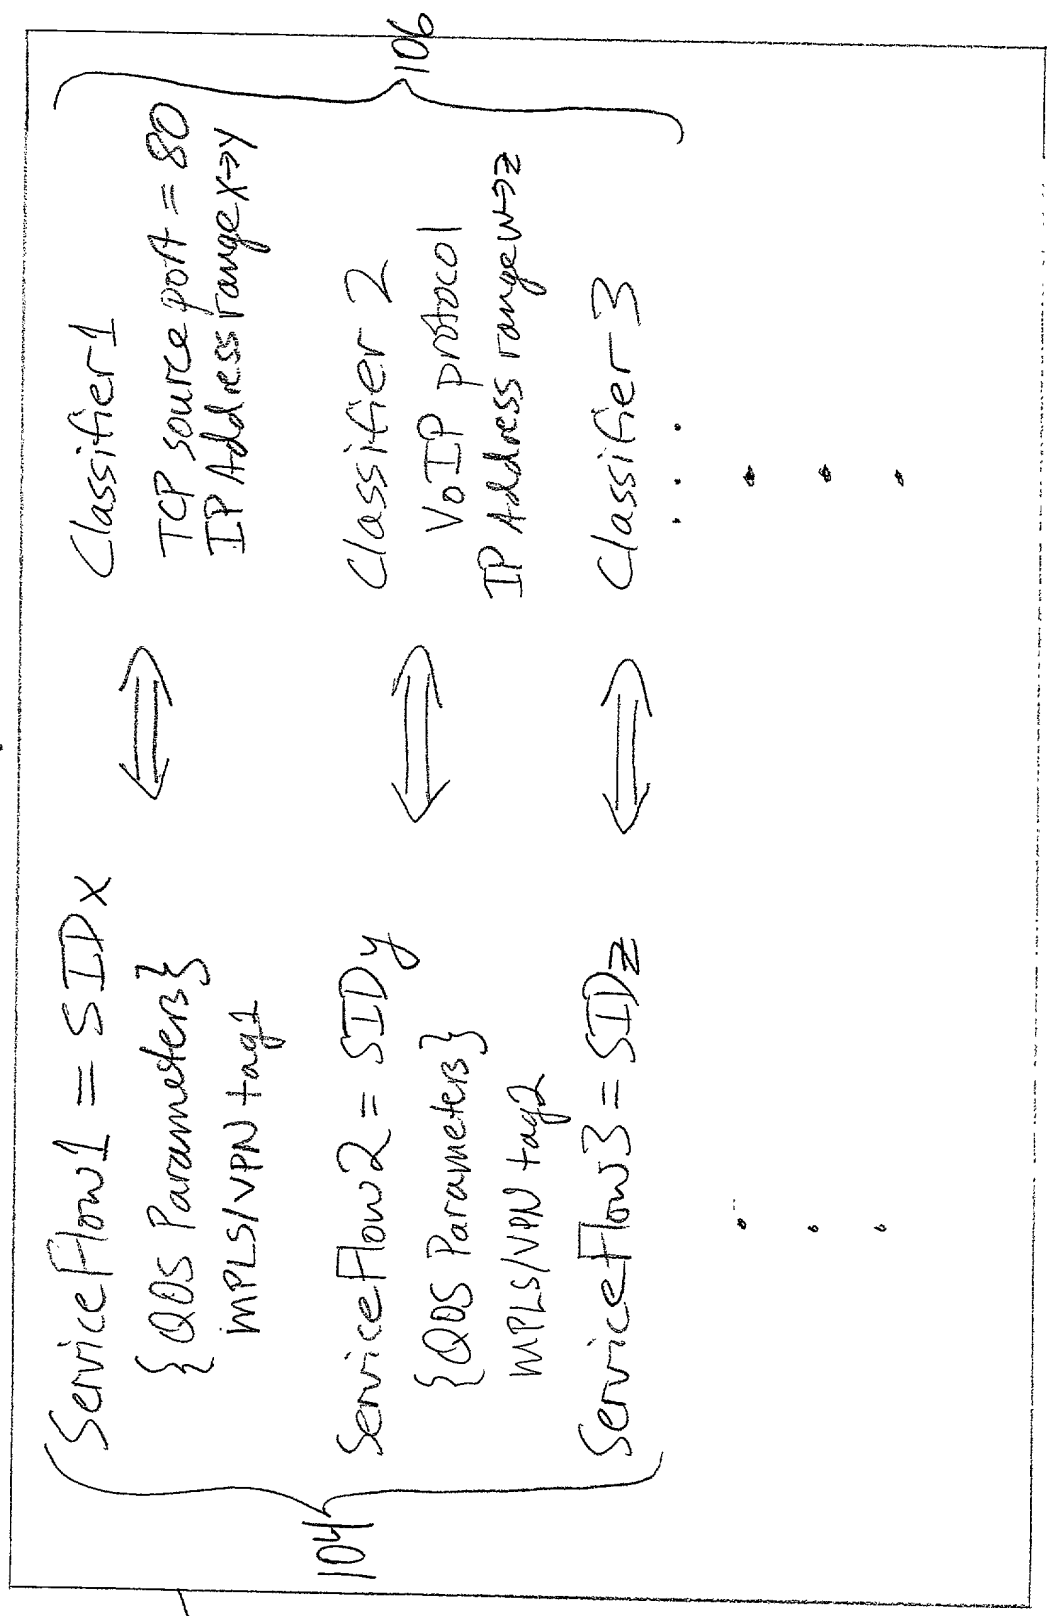 ServiceFlow1 = SIDx
{QOS Parameters}
MPLS/VPN tag1
ServiceFlow2 = SIDy
{QOS Parameters}
MPLS/VPN tag2
ServiceFlow3 = SIDz
104
Classifier1
TCP source port = 80
IP Address range x→y
Classifier 2
VoIP protocol
IP Address range w→z
Classifier 3
. . .
106